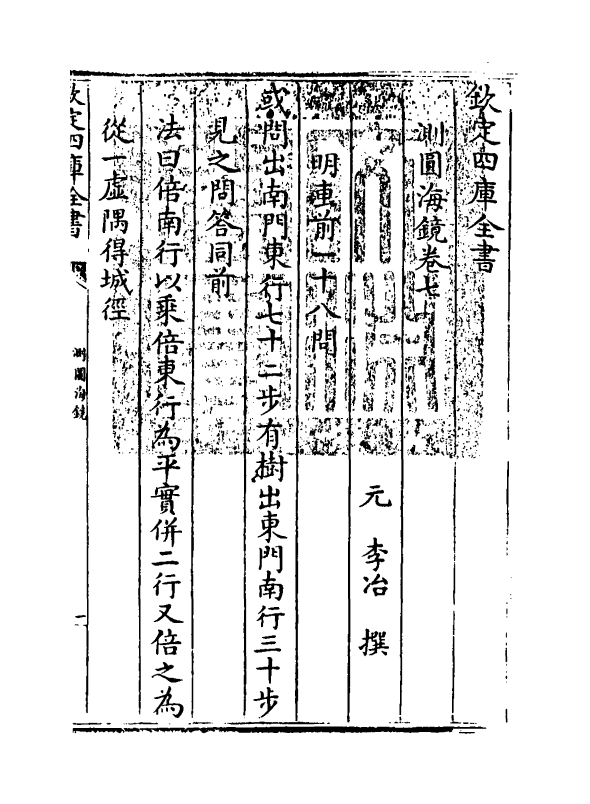 欽定四庫全書
測圓海鏡卷七
元 李冶 撰
明叀前一十八問
或問出南門東行七十二步有樹出東門南行三十步
見之問答同前
法曰倍南行以乘倍東行為平實併二行又倍之為
從一虛隅得城徑
欽定四庫全書
測圓海鏡
一